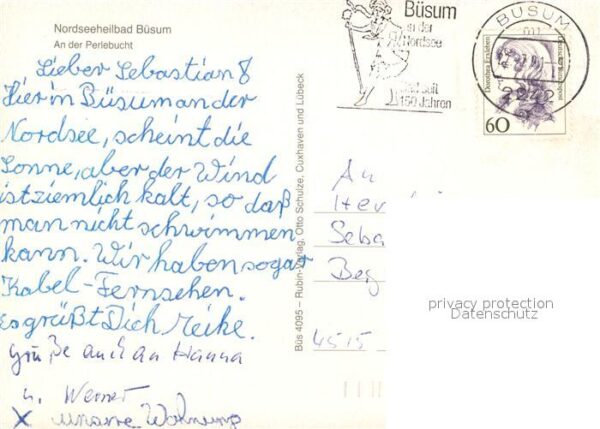 Nordseeheilbad Büsum
An der Perlebucht
Lieber Sebastian!
Hier in Büsum an der
Nordsee, scheint die
Sonne, aber der Wind
ist ziemlich kalt, so daß
man nicht schwimmen
kann. Wir haben sogar
Kabel-Fernsehen.
Es grüßt Dich Heike.
Grüße auch an Hanna
u. Werner
X unsere Wohnung
Büs 4095 – Rubin-Verlag, Otto Schulze, Cuxhaven und Lübeck
Büsum
in der
Nordsee
Bad seit
150 Jahren
BÜSUM
2242
Dorothea Erxleben
Deutsche Bundespost
60
An
Seba
4515
privacy protection
Datenschutz